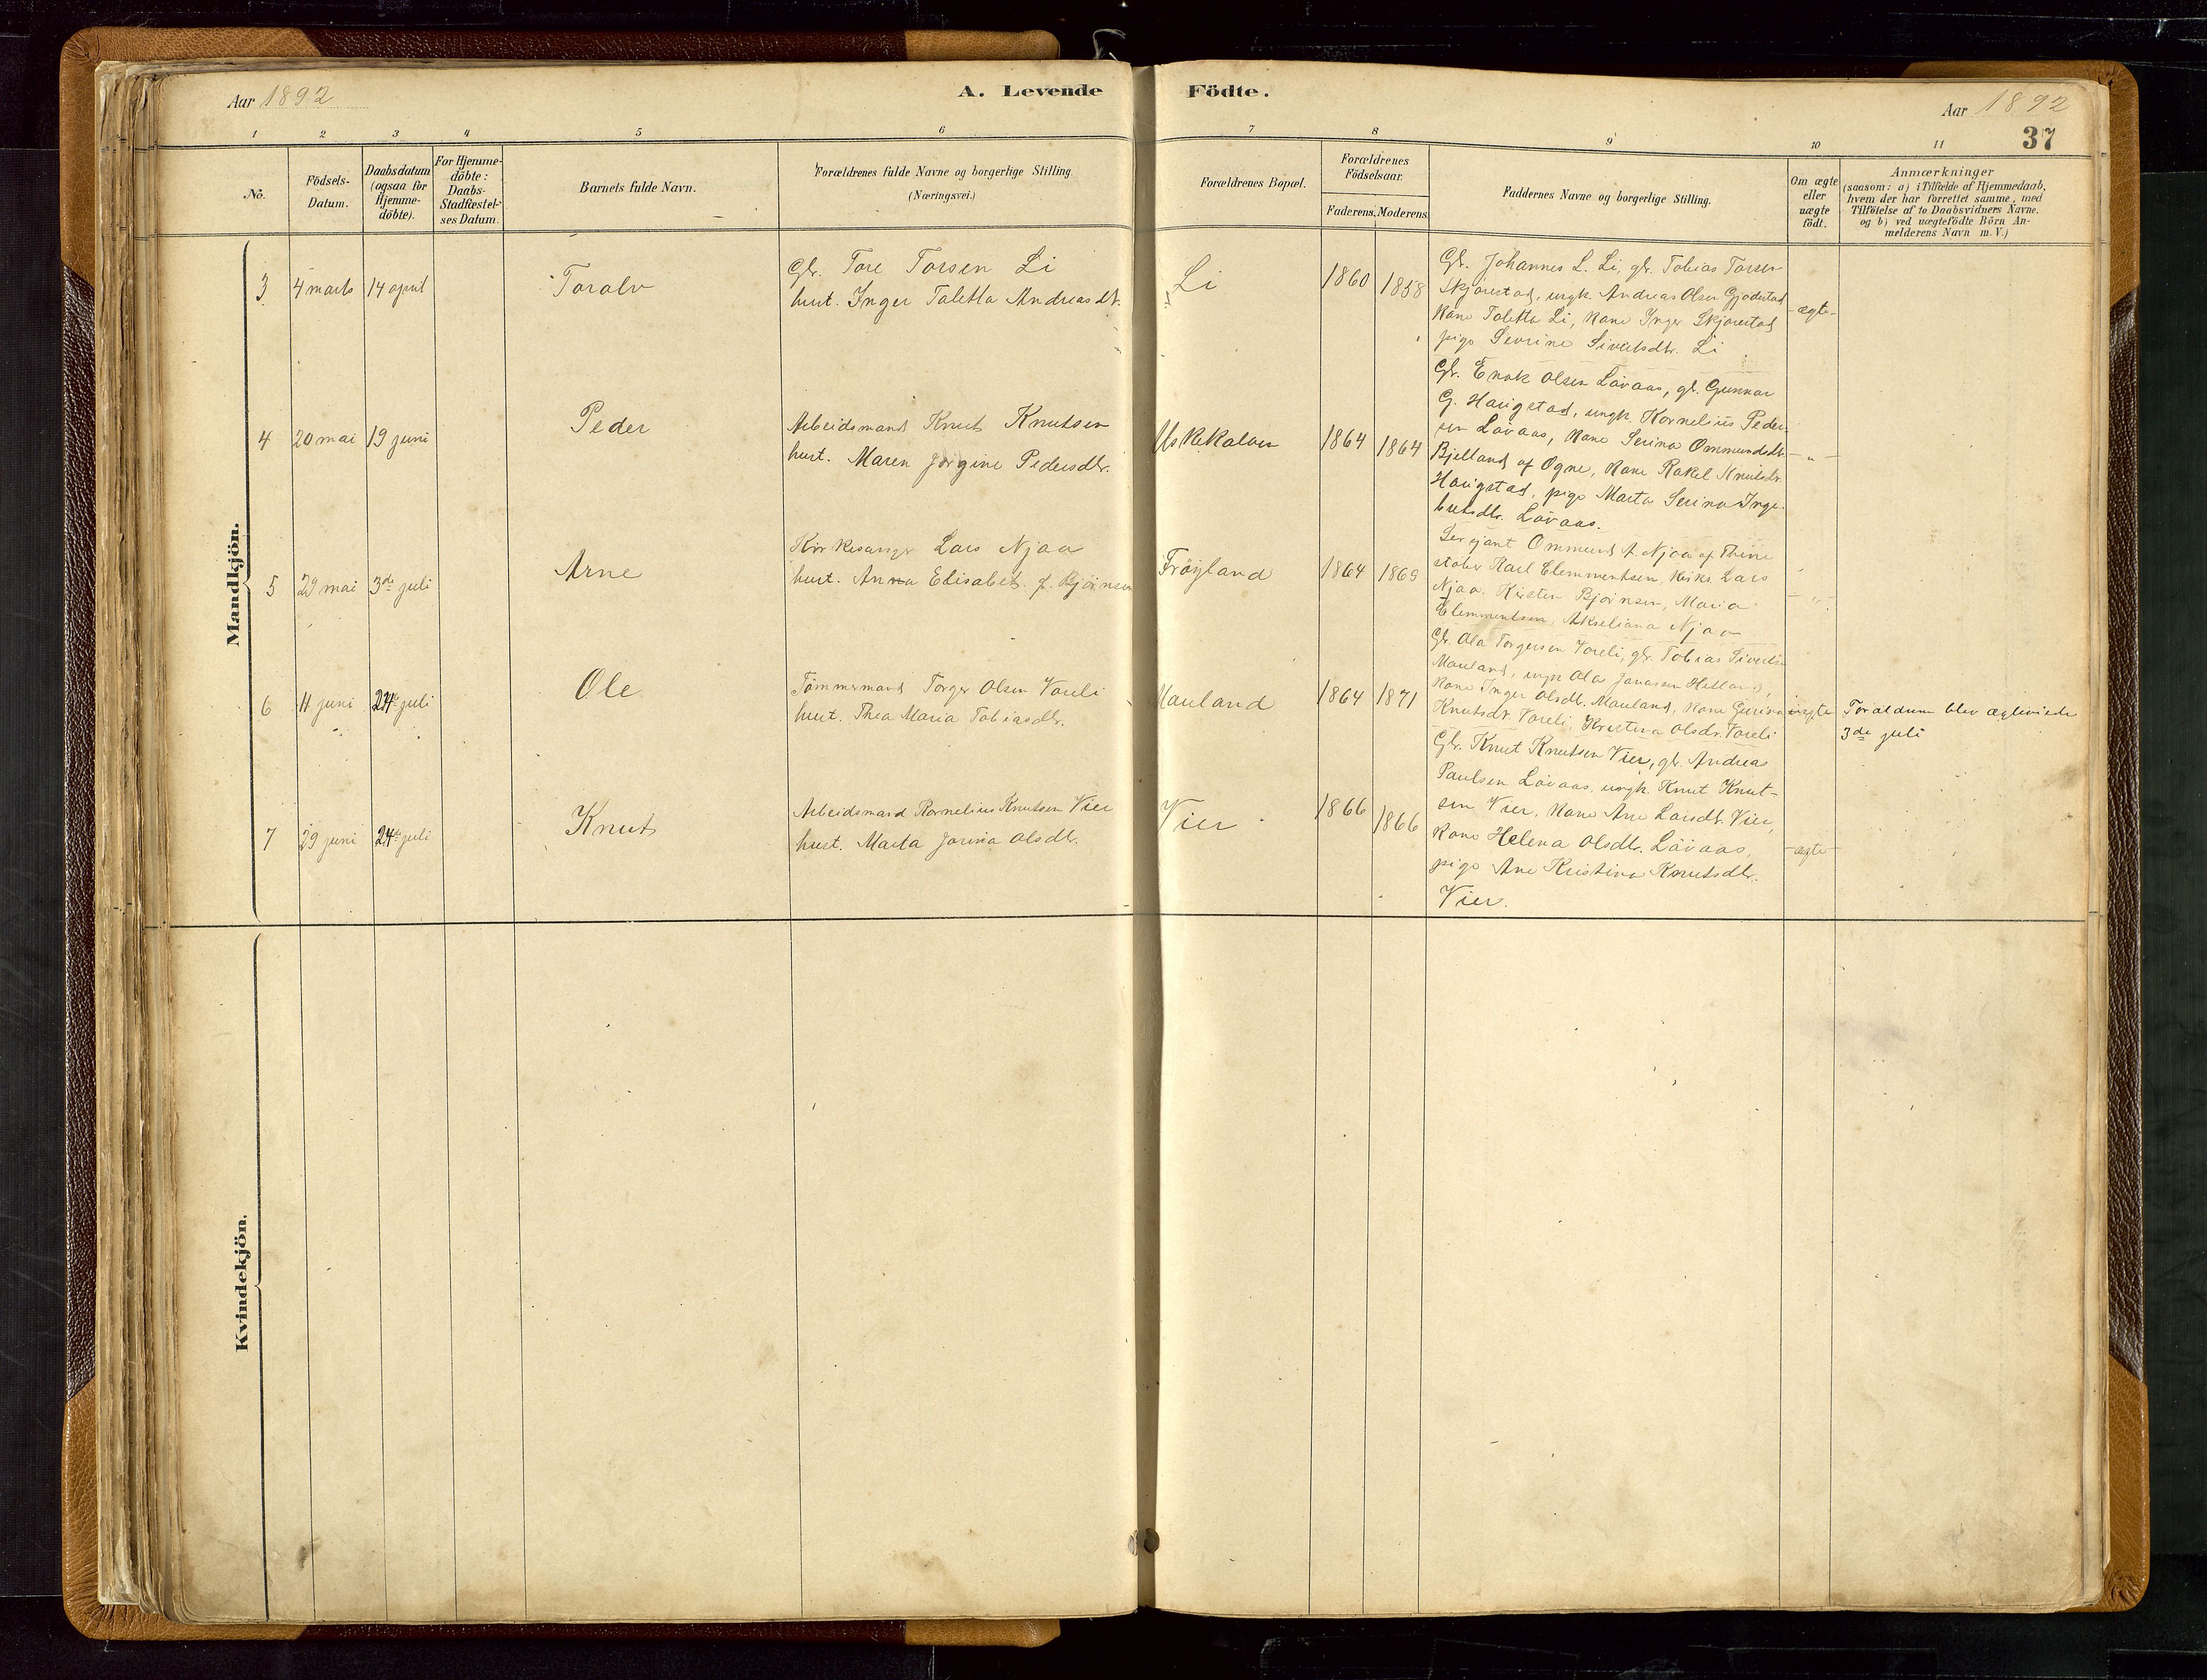 Aar 1892
A. Levende Födte.
Aar 1892
37
1 2 3 4 5 6 7 8 9 10 11
No.
Födsels-
Datum.
Daabsdatum
(ogsaa for
Hjemme-
döbte).
For Hjemme-
döbte:
Daabs-
Stadfæstel-
ses Datum.
Barnets fulde Navn.
Forældrenes fulde Navne og borgerlige Stilling.
(Næringsvei.)
Forældrenes Bopæl.
Forældrenes
Födselsaar.
Faderens. Moderens.
Faddernes Navne og borgerlige Stilling.
Om ægte
eller
uægte
födt.
Anmærkninger
(saasom: a) i Tilfælde af Hjemmedaab,
hvem der har forrettet samme, med
Tilföielse af to Daabsvidners Navne,
og b) ved uægtefödte Börn An-
melderens Navn m.V.)
Mandkjön.
3 4 marts 14 april Toralv
Gbr. Tore Torsen Li
hust. Inger Taletta Andreasdt.
Li 1860 1858
Gbr. Johannes L. Li, gbr. Tobias Torsen
Skjørestad, ungk. Andreas Olsen Gjødestad
Kone Taletta Li, Kone Inger Skjørestad
pige Sevrine Sivertsdtr. Li
ægte
4 20 mai 19 juni Peder
Arbeidsmand Knut Knutsen
hust. Maren Jørgine Pedersdtr.
Uskekalven 1864 1864
Gbr. Enok Olsen Låvaas, gb. Gunnar
G. Haugstad, ungk. Kornelius Peder-
sen Låvaas, Kone Serina Ommundsdtr.
Bjelland af Ogne, Kone Rakel Knutsdtr.
Haugstad, pige Marta Serina Inge-
bretsdtr. Låvaas.
"
5 29 mai 3de juli Arne
Kirkesanger Lars Njaa
hust. Anna Elisabet f. Bjørnsen
Frøyland 1864 1869
Sersjant Ommund A. Njaa af Thime
Karl Clemmentsen, Kirks. Lars
Njaa. Kirsten Bjørnsen, Maria
Clemmentsen, Akseliana Njaa
"
6 11 juni 24de juli Ole
Tømmermand Torger Olsen Voreli
hust. Thea Maria Tobiasdtr.
Mauland 1864 1871
Gbr. Ola Torgersen Voreli, gbr. Tobias Sivertsen
Mauland, ungk Ola Jonassen Hetland,
Kone Inger Olsdtr. Mauland, Kone Gurina
Knutsdtr. Voreli, Kristina Olsdtr. Voreli
uægte
Foraldrene blev ægteviede
3de juli
7 29 juni 24de juli Knut
Arbeidsmand Kornelius Knutsen Vier
hust. Marta Jorina Olsdtr.
Vier 1866 1866
Gbr. Knut Knutsen Vier, gb. Andreas
Paulsen Låvaas, ungk. Knut Knut-
sen Vier, Kone Ane Larsdtr. Vier,
Kone Helena Olsdtr. Låvaas,
pige Ane Kristine Knutsdtr.
Vier.
ægte
Kvindekjön.